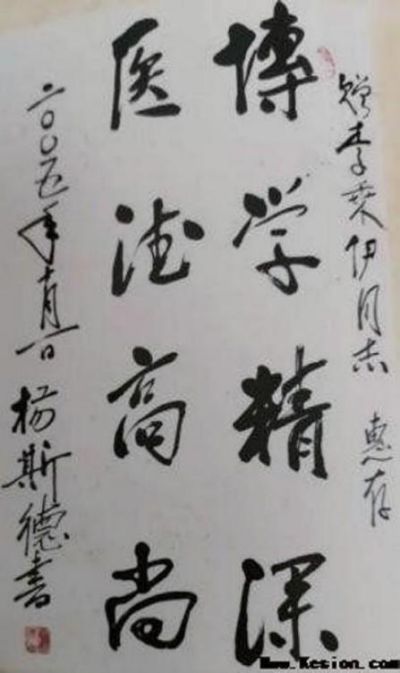 赠李乘伊同志 惠存
博学精深
医德高尚
二〇〇五年十月一日 杨斯德书
Www.Kesion.com